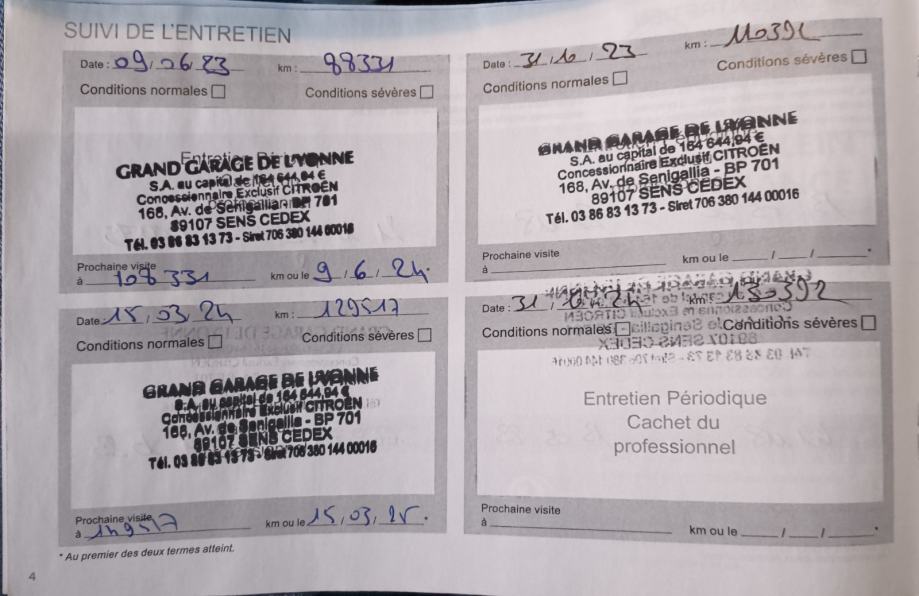 SUIVI DE L'ENTRETIEN
Date : 09/06/23 km : 88331
Conditions normales Conditions sévères
GRAND GARAGE DE L'YONNE
S.A. au capital de 164 644,94 €
Concessionnaire Exclusif CITROËN
168, Av. de Senigallia - BP 701
89107 SENS CEDEX
Tél. 03 86 83 13 73 - Siret 706 380 144 00016
Prochaine visite
à 108331 km ou le 9/6/24.
Date : 31/10/23 km : 110392
Conditions normales Conditions sévères
GRAND GARAGE DE L'YONNE
S.A. au capital de 164 644,94 €
Concessionnaire Exclusif CITROËN
168, Av. de Senigallia - BP 701
89107 SENS CEDEX
Tél. 03 86 83 13 73 - Siret 706 380 144 00016
Prochaine visite
à km ou le / / *
Date : 15/03/24 km : 129517
Conditions normales Conditions sévères
GRAND GARAGE DE L'YONNE
S.A. au capital de 164 644,94 €
Concessionnaire Exclusif CITROËN
168, Av. de Senigallia - BP 701
89107 SENS CEDEX
Tél. 03 86 83 13 73 - Siret 706 380 144 00016
Prochaine visite
à 149517 km ou le 15/03/25.
Date : 31/10/24 km : 130392
Conditions normales Conditions sévères
Entretien Périodique
Cachet du
professionnel
Prochaine visite
à km ou le / / *
* Au premier des deux termes atteint.
4